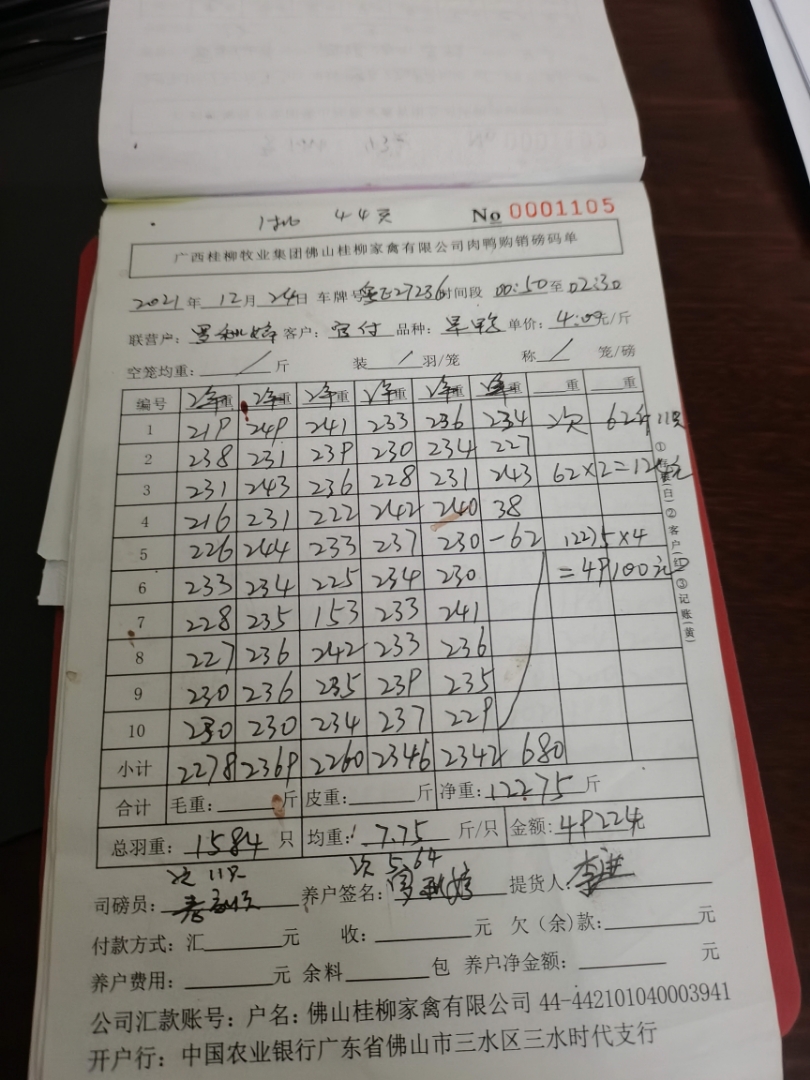 44天
No 0001105
广西桂柳牧业集团佛山桂柳家禽有限公司肉鸭购销磅码单
2021年 12月 24日 车牌号 27236 时间段 00:50 至 02:30
联营户: 客户: 品种: 单价: 4.0 元/斤
空笼均重: / 斤 装 / 羽/笼 称 / 笼/磅
编号 净重 净重 净重 净重 净重 净重 重 重
1 219 249 241 233 236 234 次 62斤 11只
2 238 231 239 230 234 227
3 231 243 236 228 231 243 62×2=124元
4 216 231 222 242 240 38
5 226 244 233 237 230 -62 12275×4
6 233 234 225 234 230 =49100元
7 228 235 153 233 241
8 227 236 242 233 236
9 230 236 235 239 235
10 230 230 234 237 229
小计 2278 2369 2260 2346 2342 680
合计 毛重: 斤 皮重: 斤 净重: 12275 斤
总羽重: 1584 只 均重: 7.75 斤/只 金额: 49224元
次 11只 次 5.64
司磅员: 养户签名: 提货人:
付款方式: 汇 元 收: 元 欠(余)款: 元
养户费用: 元 余料 包 养户净金额: 元
公司汇款账号: 户名: 佛山桂柳家禽有限公司 44-442101040003941
开户行: 中国农业银行广东省佛山市三水区三水时代支行
②客户(红)③记账(黄)